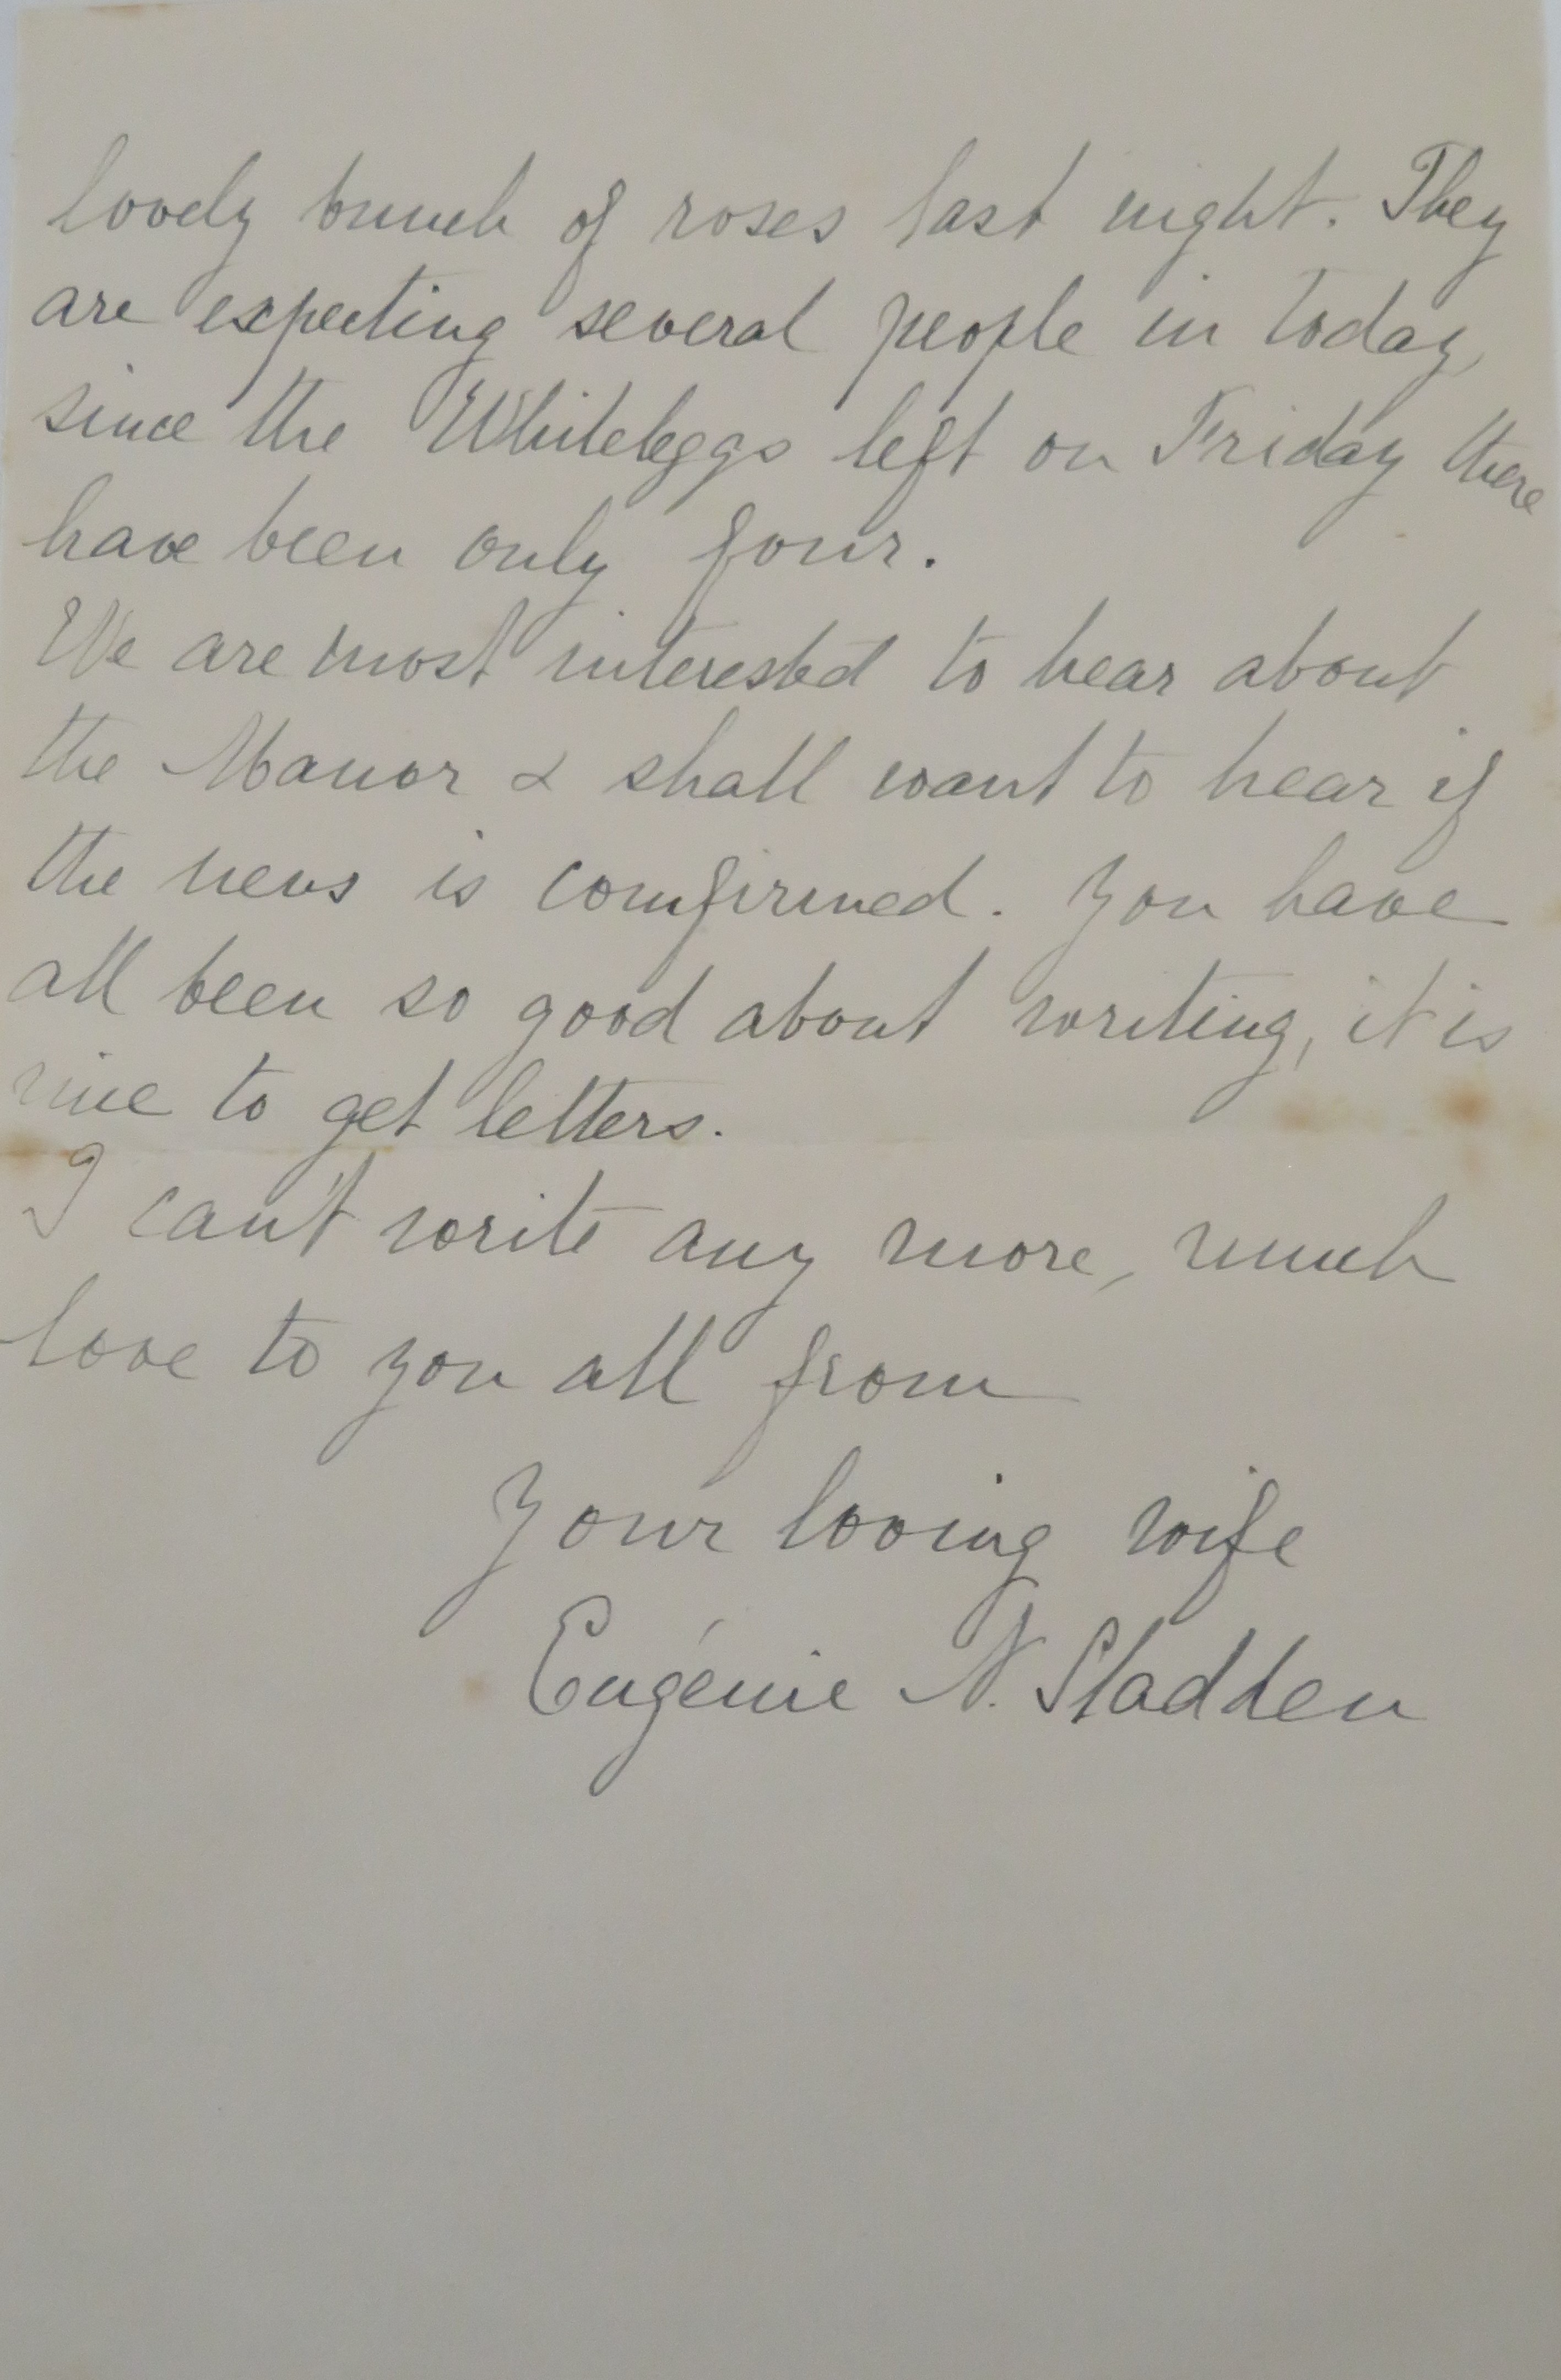 lovely bunch of roses last night. They
are expecting several people in today,
since the Whiteleggs left on Friday there
have been only four.
We are most interested to hear about
the Manor & shall want to hear if
the news is comfirmed. You have
all been so good about writing, it is
nice to get letters.
I can't write any more, much
love to you all from
Your loving wife
Eugénie N. Sladden